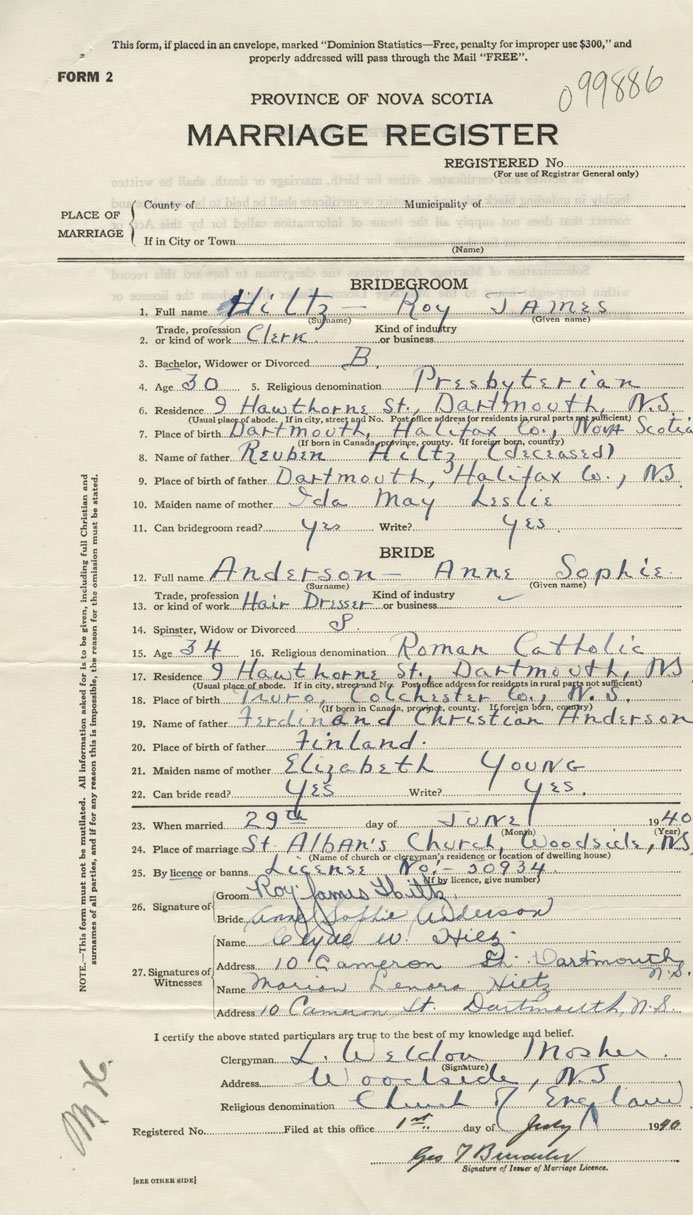 This form, if placed in an envelope, marked "Dominion Statistics—Free, penalty for improper use $300," and
properly addressed will pass through the Mail "FREE".
FORM 2
099886
PROVINCE OF NOVA SCOTIA
MARRIAGE REGISTER
REGISTERED No.
(For use of Registrar General only)
PLACE OF MARRIAGE
County of Municipality of
If in City or Town
(Name)
BRIDEGROOM
1. Full name Hiltz — Roy JAMES
(Surname) (Given name)
2. Trade, profession or kind of work Clerk. Kind of industry or business
3. Bachelor, Widower or Divorced B.
4. Age 30 5. Religious denomination Presbyterian
6. Residence 9 Hawthorne St., Dartmouth, N.S.
(Usual place of abode. If in city, street and No. Post office address for residents in rural parts not sufficient)
7. Place of birth Dartmouth, Halifax Co., Nova Scotia
(If born in Canada, province, county. If foreign born, country)
8. Name of father Reuben Hiltz (deceased)
9. Place of birth of father Dartmouth, Halifax Co., N.S.
10. Maiden name of mother Ida May Leslie
11. Can bridegroom read? Yes Write? Yes.
BRIDE
12. Full name Anderson — Anne Sophie
(Surname) (Given name)
13. Trade, profession or kind of work Hair Dresser Kind of industry or business
14. Spinster, Widow or Divorced S.
15. Age 34 16. Religious denomination Roman Catholic
17. Residence 9 Hawthorne St., Dartmouth, NS
(Usual place of abode. If in city, street and No. Post office address for residents in rural parts not sufficient)
18. Place of birth Truro, Colchester Co., N.S.
(If born in Canada, province, county. If foreign born, country)
19. Name of father Ferdinand Christian Anderson
20. Place of birth of father Finland.
21. Maiden name of mother Elizabeth YOUNG
22. Can bride read? Yes Write? Yes.
23. When married 29th day of JUNE 1940
(Month) (Year)
24. Place of marriage St Alban's Church, Woodside, N.S.
(Name of church or clergyman's residence or location of dwelling house)
25. By licence or banns License No. - 30934
(If by licence, give number)
26. Signature of Groom Roy James Hiltz
Bride Anne Sophie Anderson
27. Signatures of Witnesses
Name Clyde W. Hiltz
Address 10 Cameron St. Dartmouth, N.S.
Name Marion Lenora Hiltz
Address 10 Cameron St. Dartmouth, N.S.
I certify the above stated particulars are true to the best of my knowledge and belief.
Clergyman L. Weldon Mosher.
(Signature)
Address Woodside, N.S
Religious denomination Church of England.
Registered No. Filed at this office 1st. day of July 1940
Signature of Issuer of Marriage Licence.
[SEE OTHER SIDE]
NOTE.—This form must not be mutilated. All information asked for is to be given, including full Christian and
surnames of all parties, and if for any reason this is impossible, the reason for the omission must be stated.